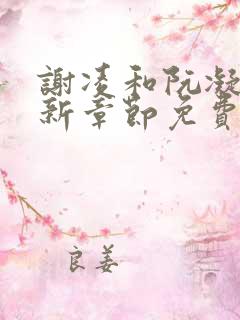 謝凌和阮凝
新章節免費
良姜